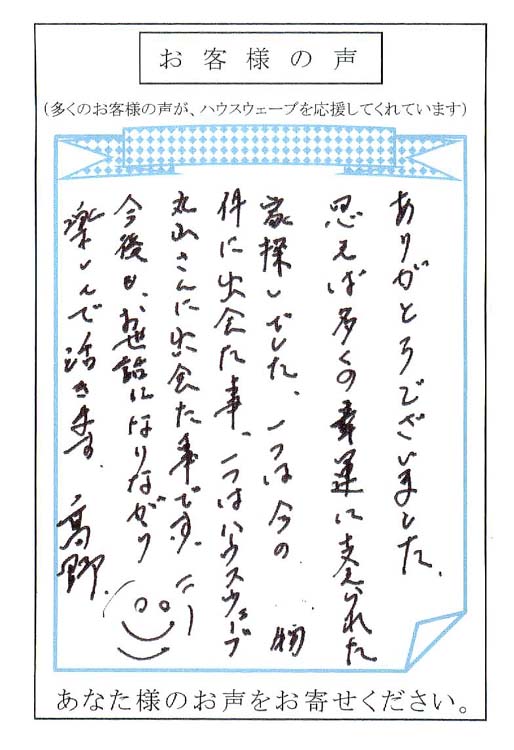 お客様の声
(多くのお客様の声が、ハウスウェーブを応援してくれています)
ありがとうございました。
思えば多くの幸運に支えられた
家探しでした、一つは今の 物
件に出会た事、一つはハウスウェーブ
丸山さんに出会た事です。
今後も、お世話になりながら
楽しんで活きます。
高野
あなた様のお声をお寄せください。